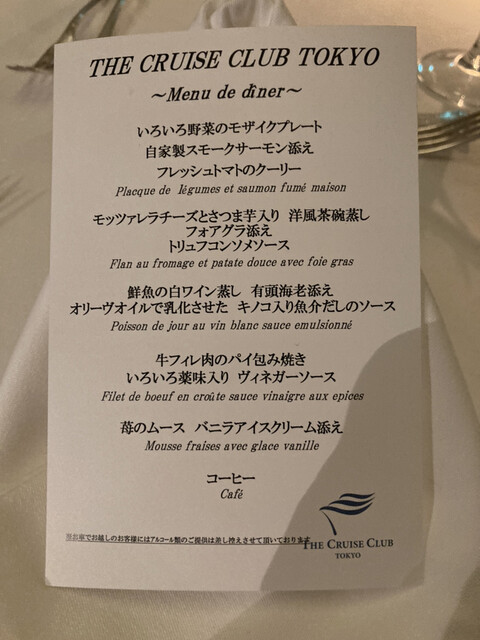 THE CRUISE CLUB TOKYO
～Menu de dîner～
いろいろ野菜のモザイクプレート
自家製スモークサーモン添え
フレッシュトマトのクーリー
Placque de légumes et saumon fumé maison
モッツァレラチーズとさつま芋入り 洋風茶碗蒸し
フォアグラ添え
トリュフコンソメソース
Flan au fromage et patate douce avec foie gras
鮮魚の白ワイン蒸し 有頭海老添え
オリーヴオイルで乳化させた キノコ入り魚介だしのソース
Poisson de jour au vin blanc sauce emulsionné
牛フィレ肉のパイ包み焼き
いろいろ薬味入り ヴィネガーソース
Filet de boeuf en croûte sauce vinaigre aux epices
苺のムース バニラアイスクリーム添え
Mousse fraises avec glace vanille
コーヒー
Café
※お車でお越しのお客様にはアルコール類のご提供は差し控えさせて頂いております
THE CRUISE CLUB
TOKYO